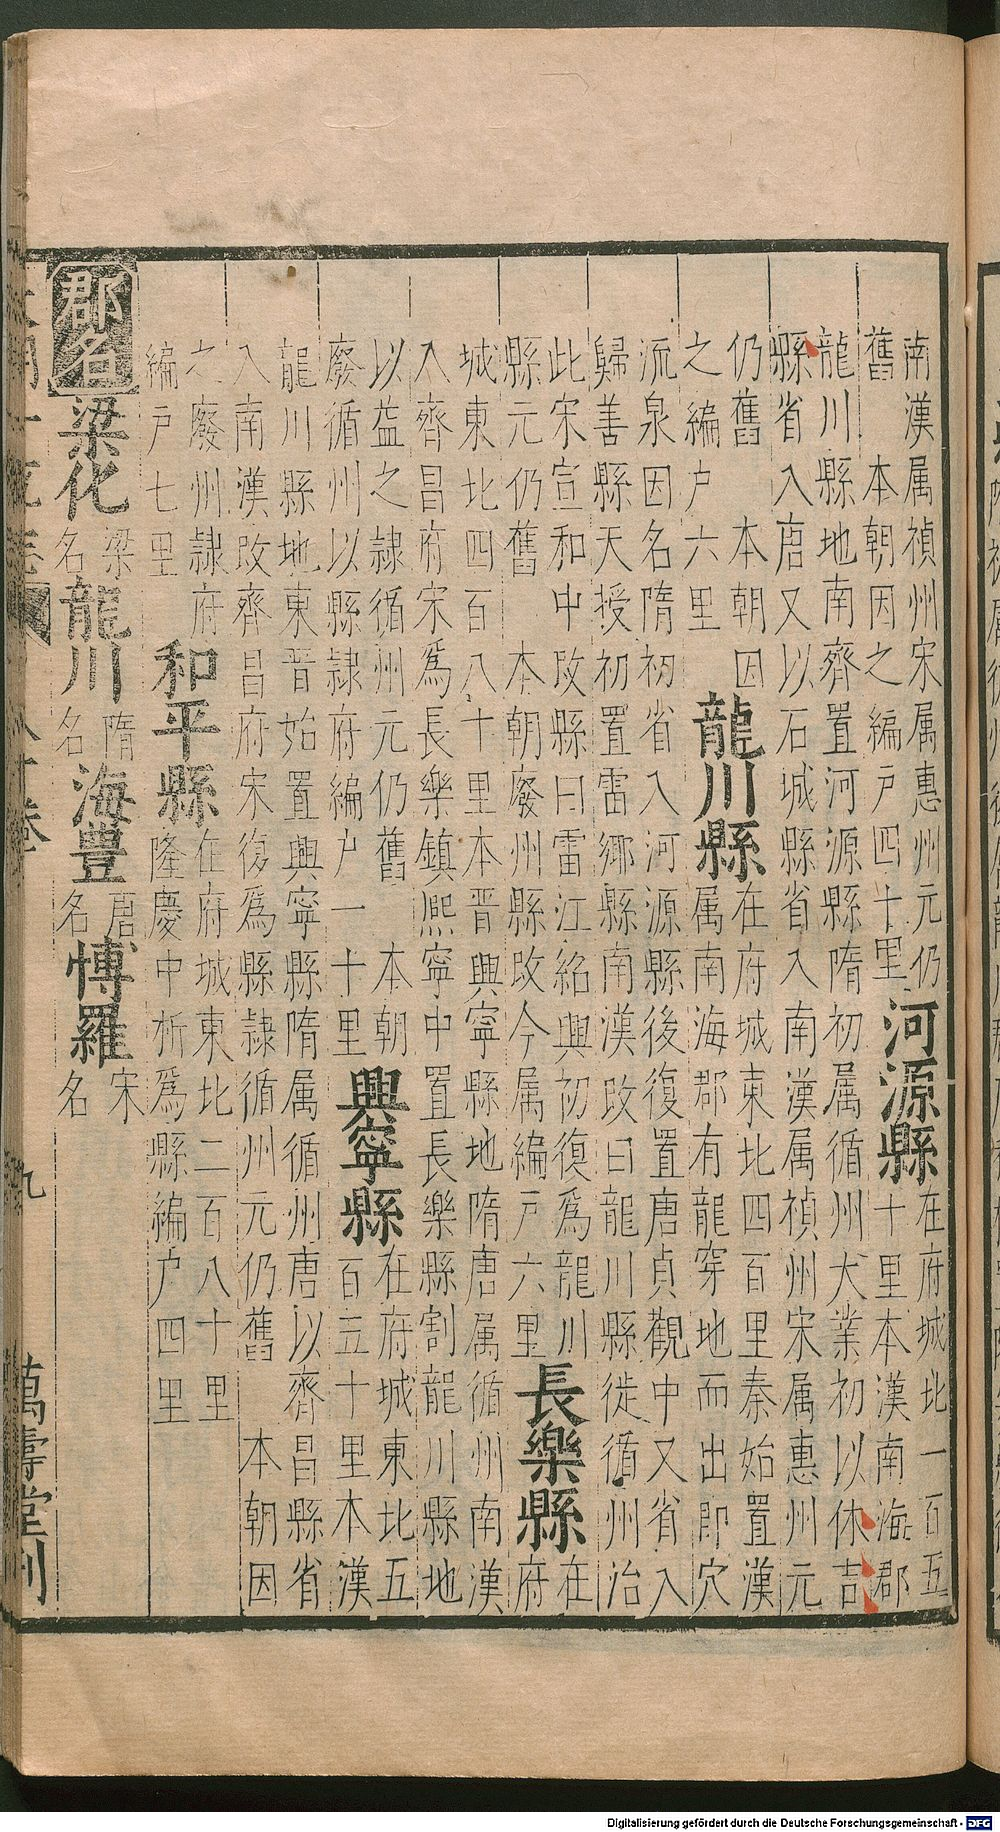 南漢属禎州宋属惠州元仍
舊 本朝因之編戸四十里
河源縣
在府城北一百五
十里本漢南海郡
龍川縣地南齊置河源縣隋初属循州大業初以休吉
縣省入唐又以石城縣省入南漢属禎州宋属惠州元
仍舊 本朝因
之編户六里
龍川縣
在府城東北四百里秦始置漢
属南海郡有龍穿地而出即穴
流泉因名隋初省入河源縣後復置唐貞觀中又省入
歸善縣天授初置雷鄉縣南漢改曰龍川縣徙循州治
此宋宣和中改縣曰雷江紹興初復爲龍川
縣元仍舊 本朝廢州縣改今属編户六里
長樂縣
在
府
城東北四百八十里本晋興寧縣地隋唐属循州南漢
入齊昌府宋爲長樂鎮熈寧中置長樂縣割龍川縣地
以益之隷循州元仍舊 本朝
廢循州以縣隷府編户一十里
興寧縣
在府城東北五
百五十里本漢
龍川縣地東晋始置興寧縣隋属循州唐以齊昌縣省
入南漢改齊昌府宋復爲縣隷循州元仍舊 本朝因
之廢州隷府
編户七里
和平縣
在府城東北二百八十里
隆慶中析爲縣編户四里
郡名 梁化 梁名 龍川 隋名 海豊 唐名 博羅 宋名
九 萬壽堂刋
Digitalisierung gefördert durch die Deutsche Forschungsgemeinschaft - DFG